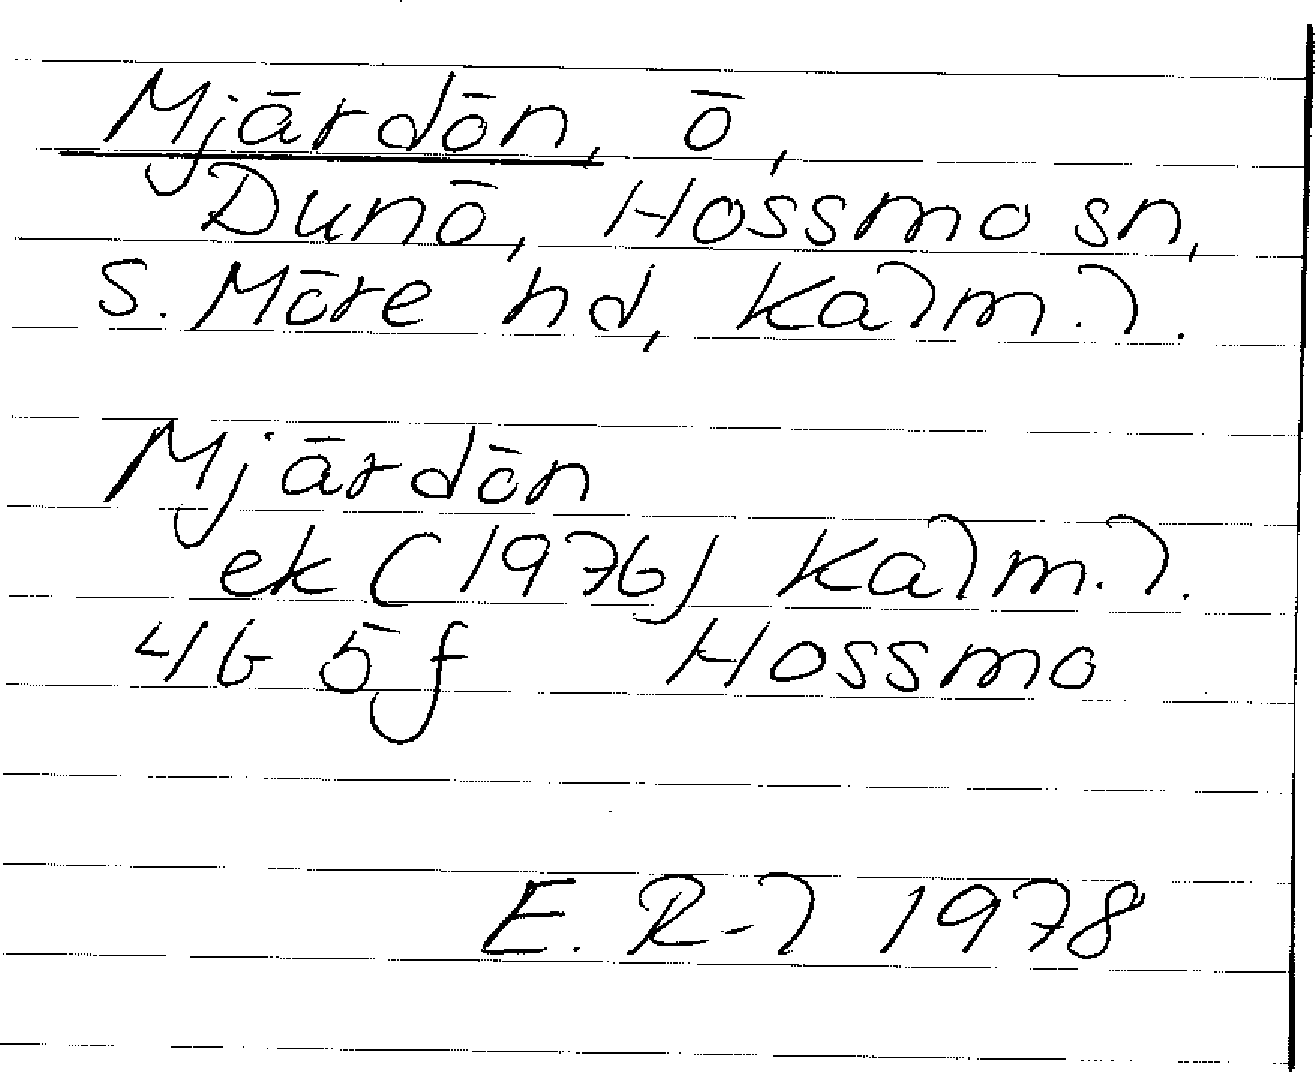 Mjärdön, ö,
Dunö, Hossmo sn,
S. Möre hd, Kalm. l.
Mjärdön
ek (1976) Kalm. l.
4G 5f Hossmo
E. R-l 1978